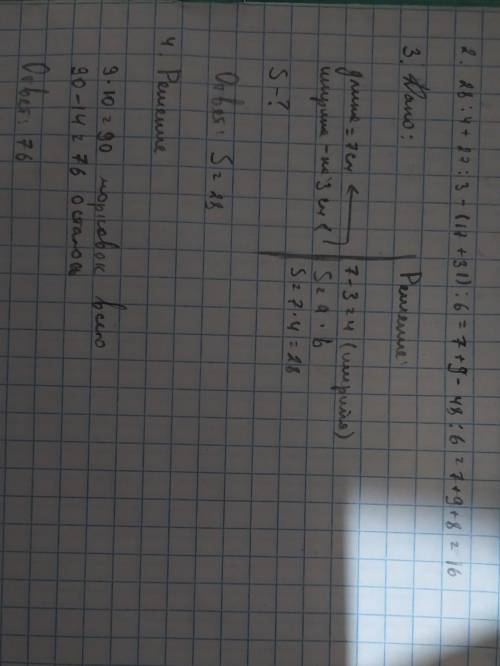 2. 28 : 4 + 27 : 3 - (17 + 31) : 6 = 7 + 9 - 48 : 6 = 7 + 9 + 8 = 16
3. Дано:
длина = 7 см
ширина - на 3 см <
S - ?
Решение:
7 - 3 = 4 (ширина)
S = a · b
S = 7 · 4 = 28
Ответ: S = 28
4. Решение
9 · 10 = 90 морковок всего
90 - 14 = 76 осталось
Ответ: 76